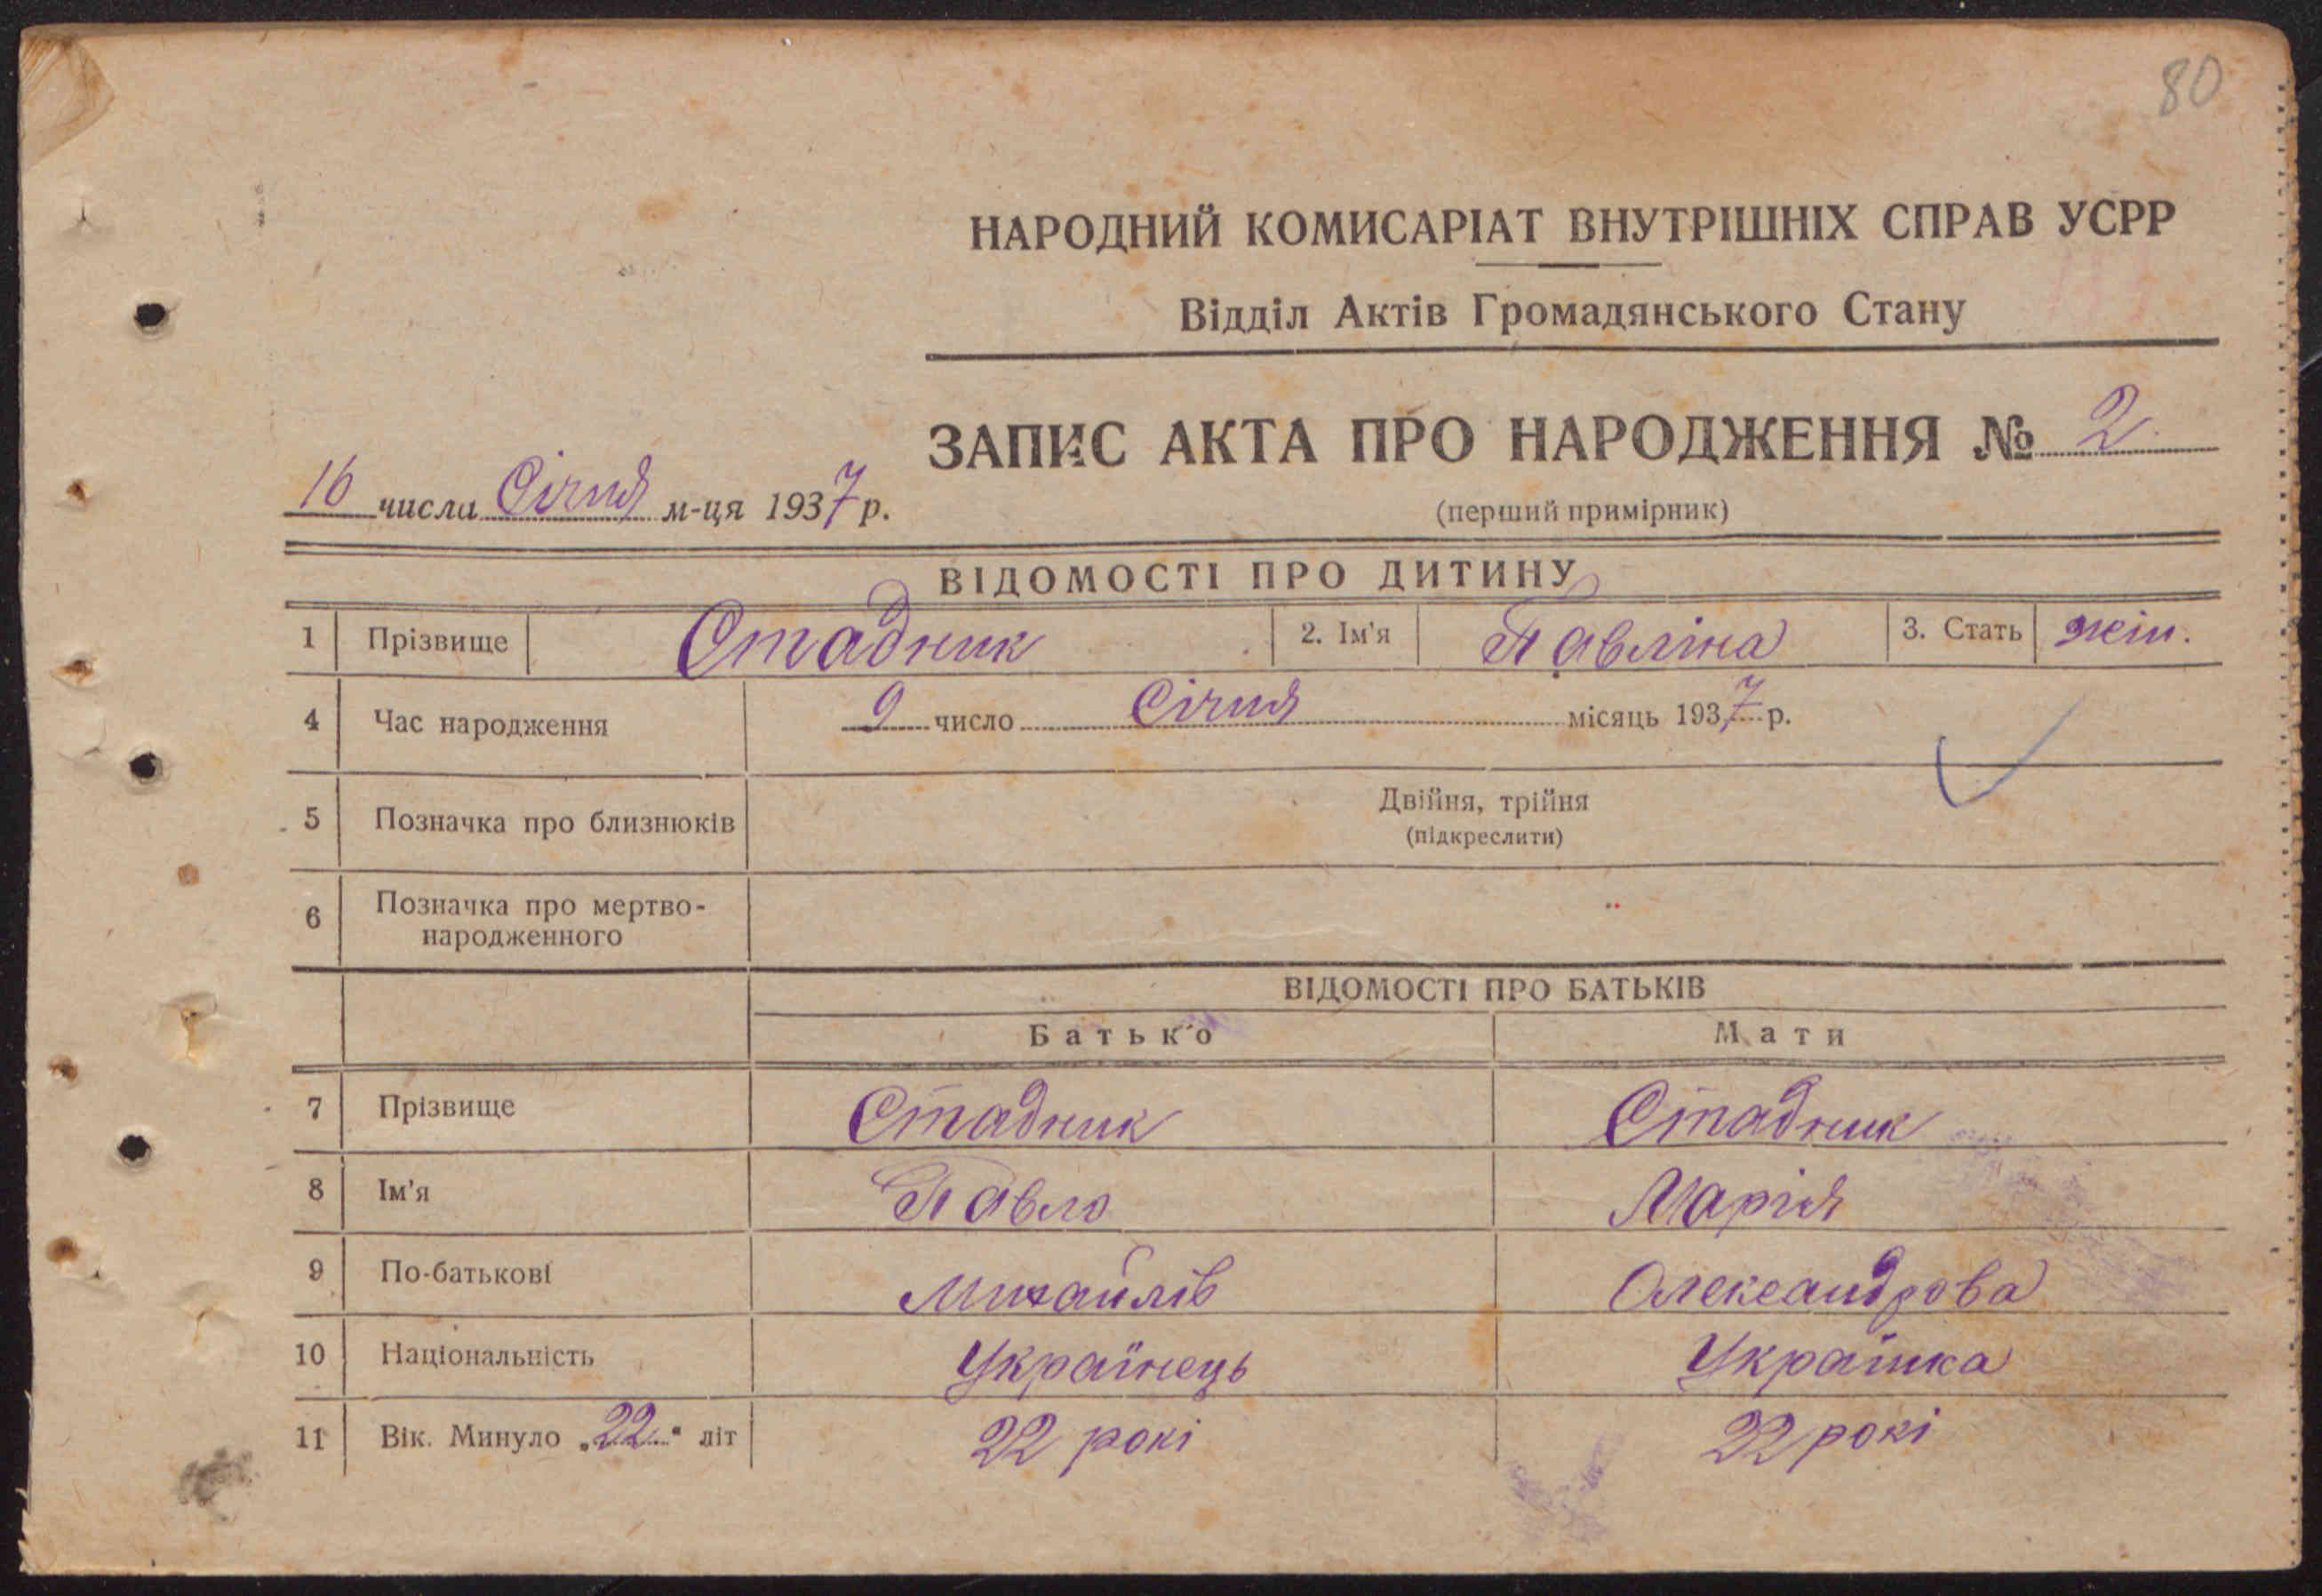 80
НАРОДНИЙ КОМИСАРІАТ ВНУТРІШНІХ СПРАВ УСРР
Відділ Актів Громадянського Стану
ЗАПИС АКТА ПРО НАРОДЖЕННЯ № 2
16 числа Січня м-ця 1937 р.
(перший примірник)
ВІДОМОСТІ ПРО ДИТИНУ
1 Прізвище Стадник 2. Ім'я Павліна 3. Стать жін.
4 Час народження 9 число Січня місяць 1937 р.
5 Позначка про близнюків Двійня, трійня
(підкреслити)
6 Позначка про мертво-
народженного
ВІДОМОСТІ ПРО БАТЬКІВ
Батько Мати
7 Прізвище Стадник Стадник
8 Ім'я Павло Марія
9 По-батькові Михайлів Олександрова
10 Національність Українець Українка
11 Вік. Минуло „22" літ 22 рокі 22 рокі